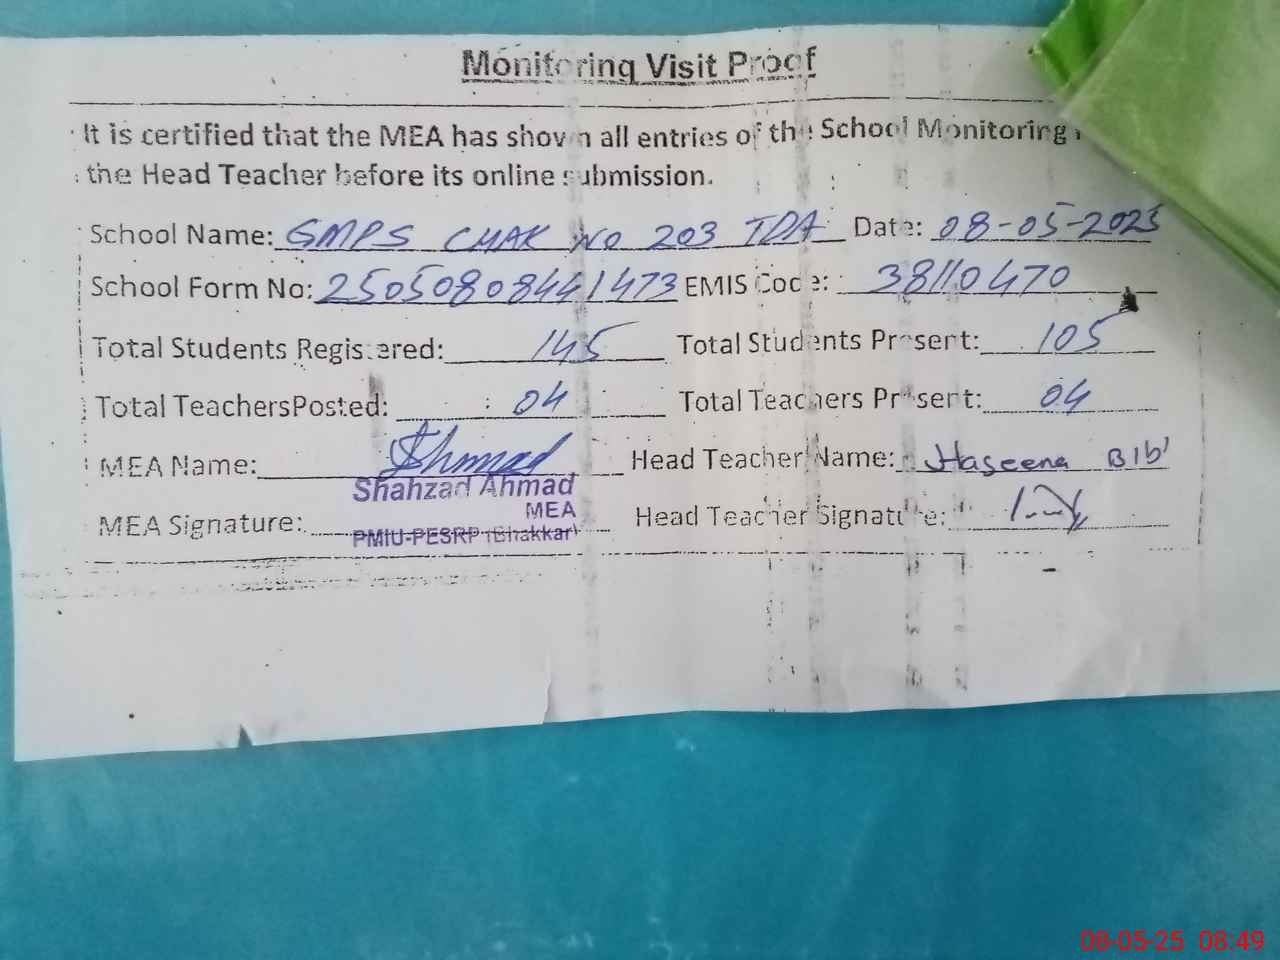 Monitoring Visit Proof
It is certified that the MEA has shown all entries of the School Monitoring
the Head Teacher before its online submission.
School Name: GMPS CHAK No 203 TDA Date: 08-05-2025
School Form No: 25050808441473 EMIS Code: 38110470
Total Students Registered: 145 Total Students Present: 105
Total TeachersPosted: 04 Total Teachers Present: 04
MEA Name: Head Teacher Name: Haseena BIbi
Shahzad Ahmad
MEA
MEA Signature: PMIU-PESRP (Bhakkar) Head Teacher Signature:
08-05-25 08:49